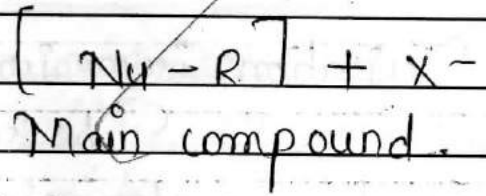 [ Nu - R ] + X -
Main compound.